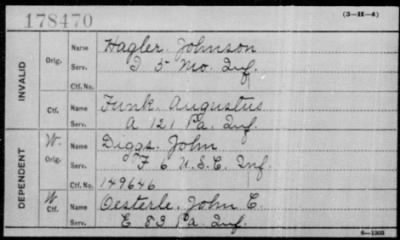 178470
(3-H-4)
INVALID
Orig.
Name Hagler, Johnson
Serv. I 5 Mo. Inf.
Ctf. No.
Ctf.
Name Funk, Augustus
Serv. A 121 Pa. Inf.
DEPENDENT
W. Orig.
Name Diggs, John
Serv. F 6 U.S.C. Inf.
Ctf. No. 149646
W Ctf.
Name Oesterle, John C.
Serv. E 83 Pa. Inf.